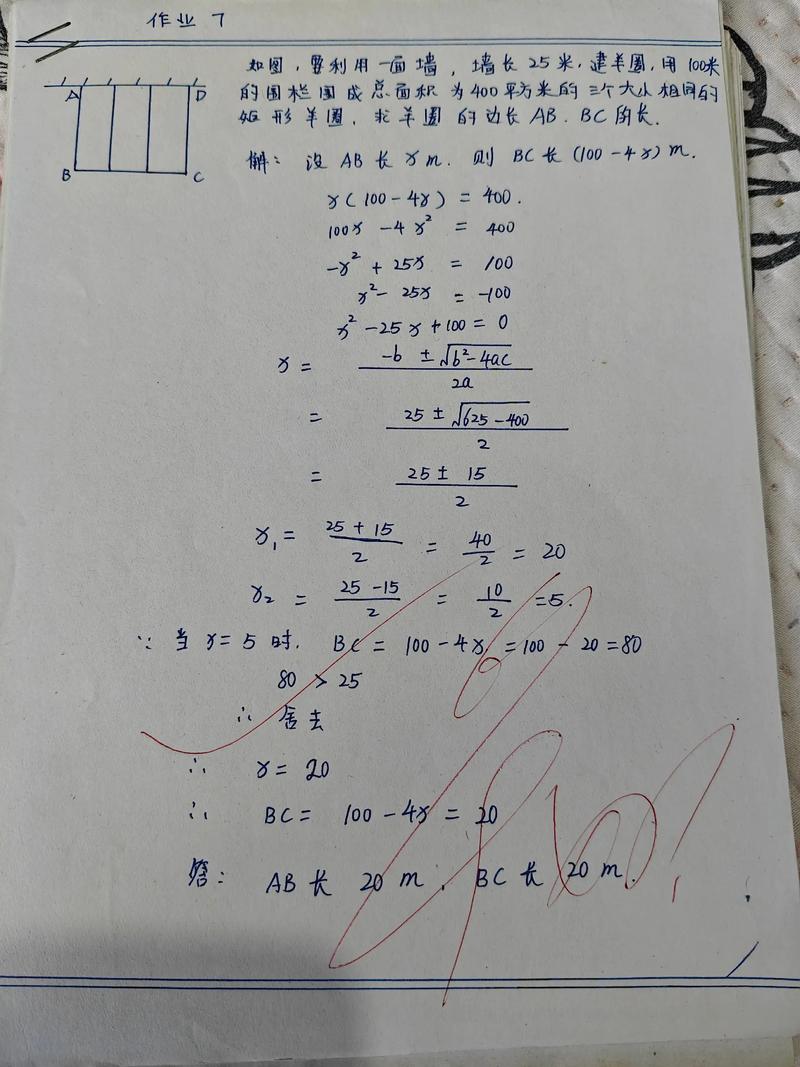 作业 7
如图,要利用一面墙,墙长25米,建羊圈,用100米
的围栏围成总面积为400平方米的三个大小相同的
矩形羊圈,求羊圈的边长AB、BC的长.
A D
B C
解: 设 AB 长 x m. 则 BC 长 (100-4x) m.
x(100-4x) = 400.
100x - 4x² = 400
-x² + 25x = 100
x² - 25x = -100
x² - 25x + 100 = 0
x = (-b ± √(b²-4ac)) / 2a
= (25 ± √(625-400)) / 2
= (25 ± 15) / 2
x₁ = (25+15)/2 = 40/2 = 20
x₂ = (25-15)/2 = 10/2 = 5.
∵ 当 x=5 时. BC = 100-4x = 100-20 = 80
80 > 25
∴ 舍去
∴ x = 20
∴ BC = 100-4x = 20
答: AB 长 20 m, BC 长 20 m.